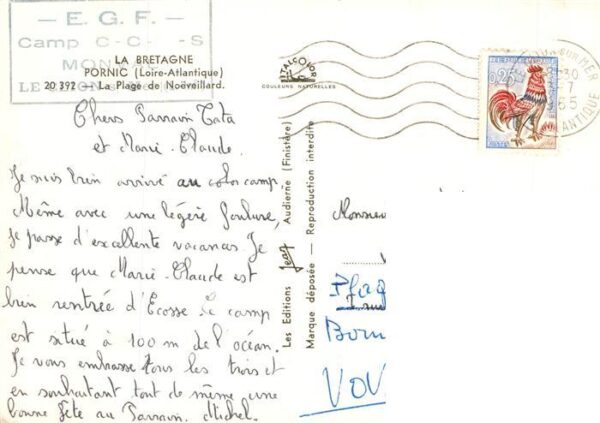 — E. G. F. —
Camp C-C- -S
MON
LE
LA BRETAGNE
PORNIC (Loire-Atlantique)
20 392 - La Plage de Noëveillard.
ITALCOLOR
COULEURS NATURELLES
Chers Parrain Tata
et Marie-Claude.
Je suis bien arrivé au camp,
Même avec une légère foulure,
je passe d'excellente vacances. Je
pense que Marie-Claude est
bien rentrée d'Ecosse. Le camp
est situé à 100 m de l'océan.
Je vous embrasse tous les trois et
en souhaitant tout de même une
bonne fête au Parrain. Michel.
Les Editions Jean Audierne (Finistère)
Marque déposée — Reproduction interdite
0,25
SUR MER
-7
ATLANTIQUE
Monsieu
Plaq
Bour
VOV